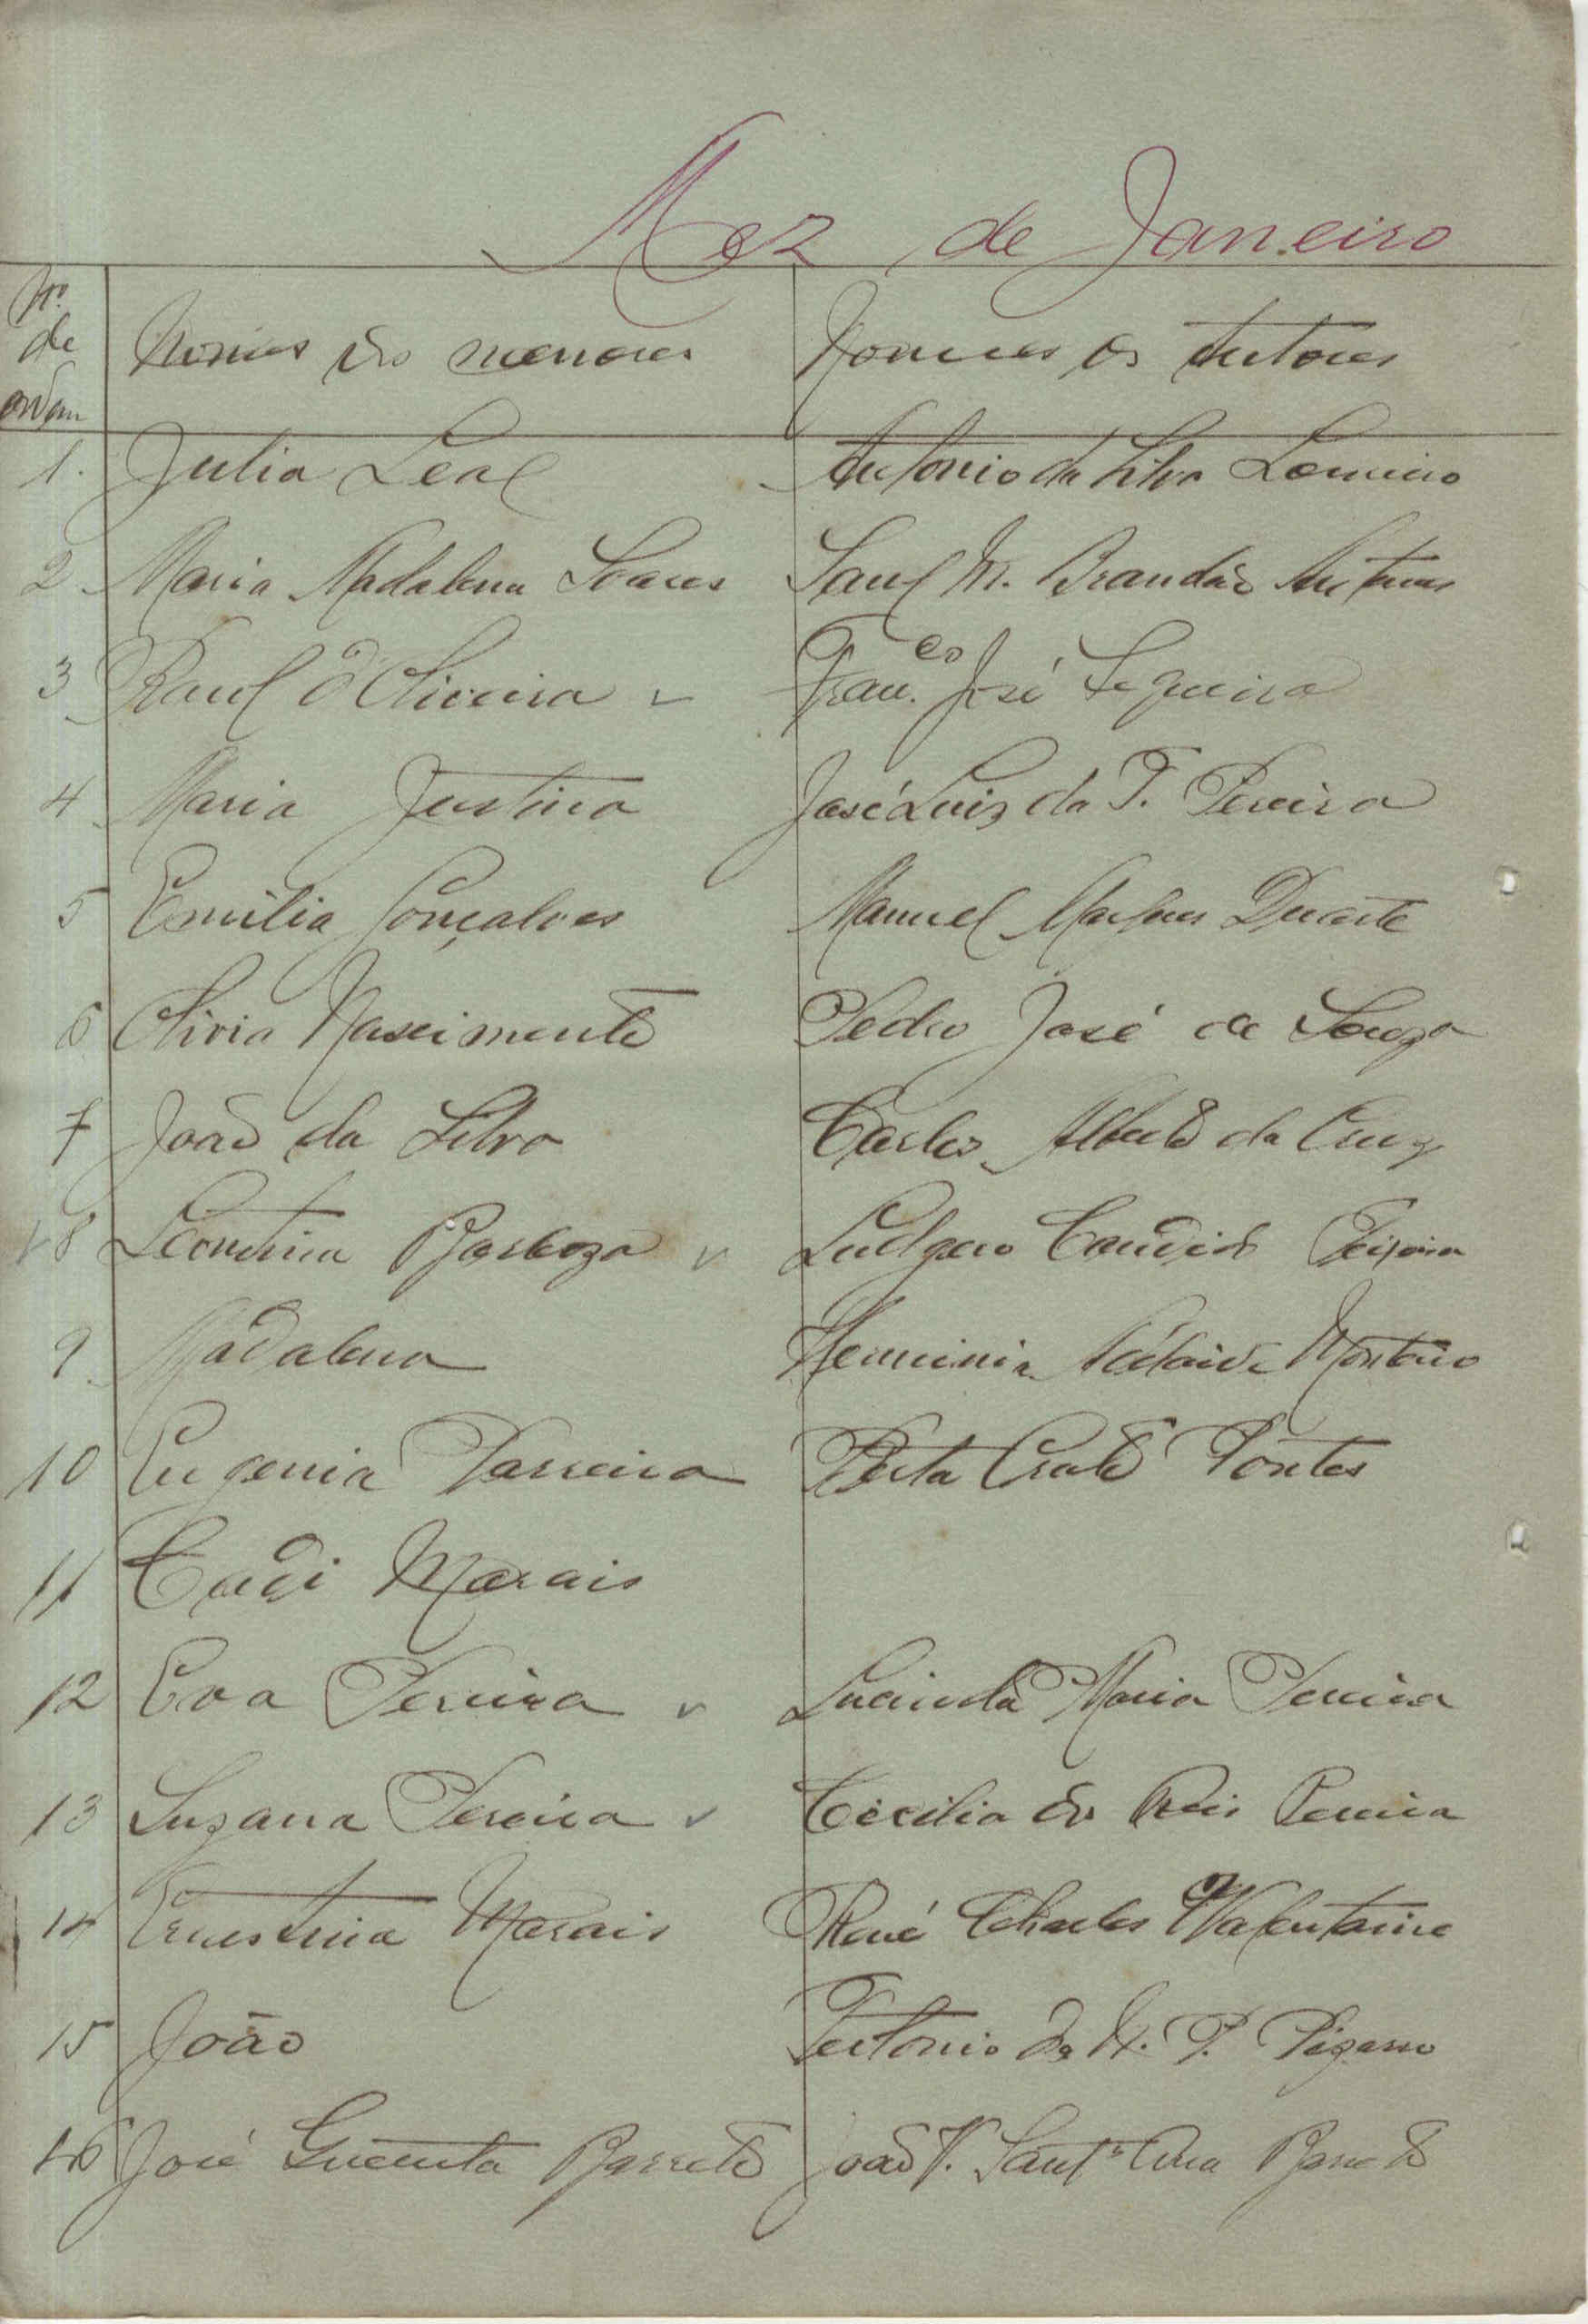 Mez de Janeiro
Nº de ordem Nomes dos menores Nomes os tutores
1. Julia Leal Antonio da Silva Loureiro
2 Maria Madalena Soares Saul M. Brandão Antunes
3 Raul d'Oliveira Fran.co José Sequeira
4 Maria Justina José Luiz da T. Pereira
5 Emilia Gonçalves Manuel Marques Duarte
6 Olivia Nascimento Pedro José de Souza
7 João da Silva Carlos Alberto da Cruz
8 Leontina Barboza Ludgero Candido Teixeira
9 Madalena Herminia Adelaide Monteiro
10 Eugenia Parreira Berta Pontes
11 Marais
12 Eva Pereira Lucinda Maria Pereira
13 Suzana Pereira Cecilia dos Reis Pereira
14 Ernestina Marais René Charles
15 João da P. Pizarro
16 José Barreto João V. Sant'Ana Barreto